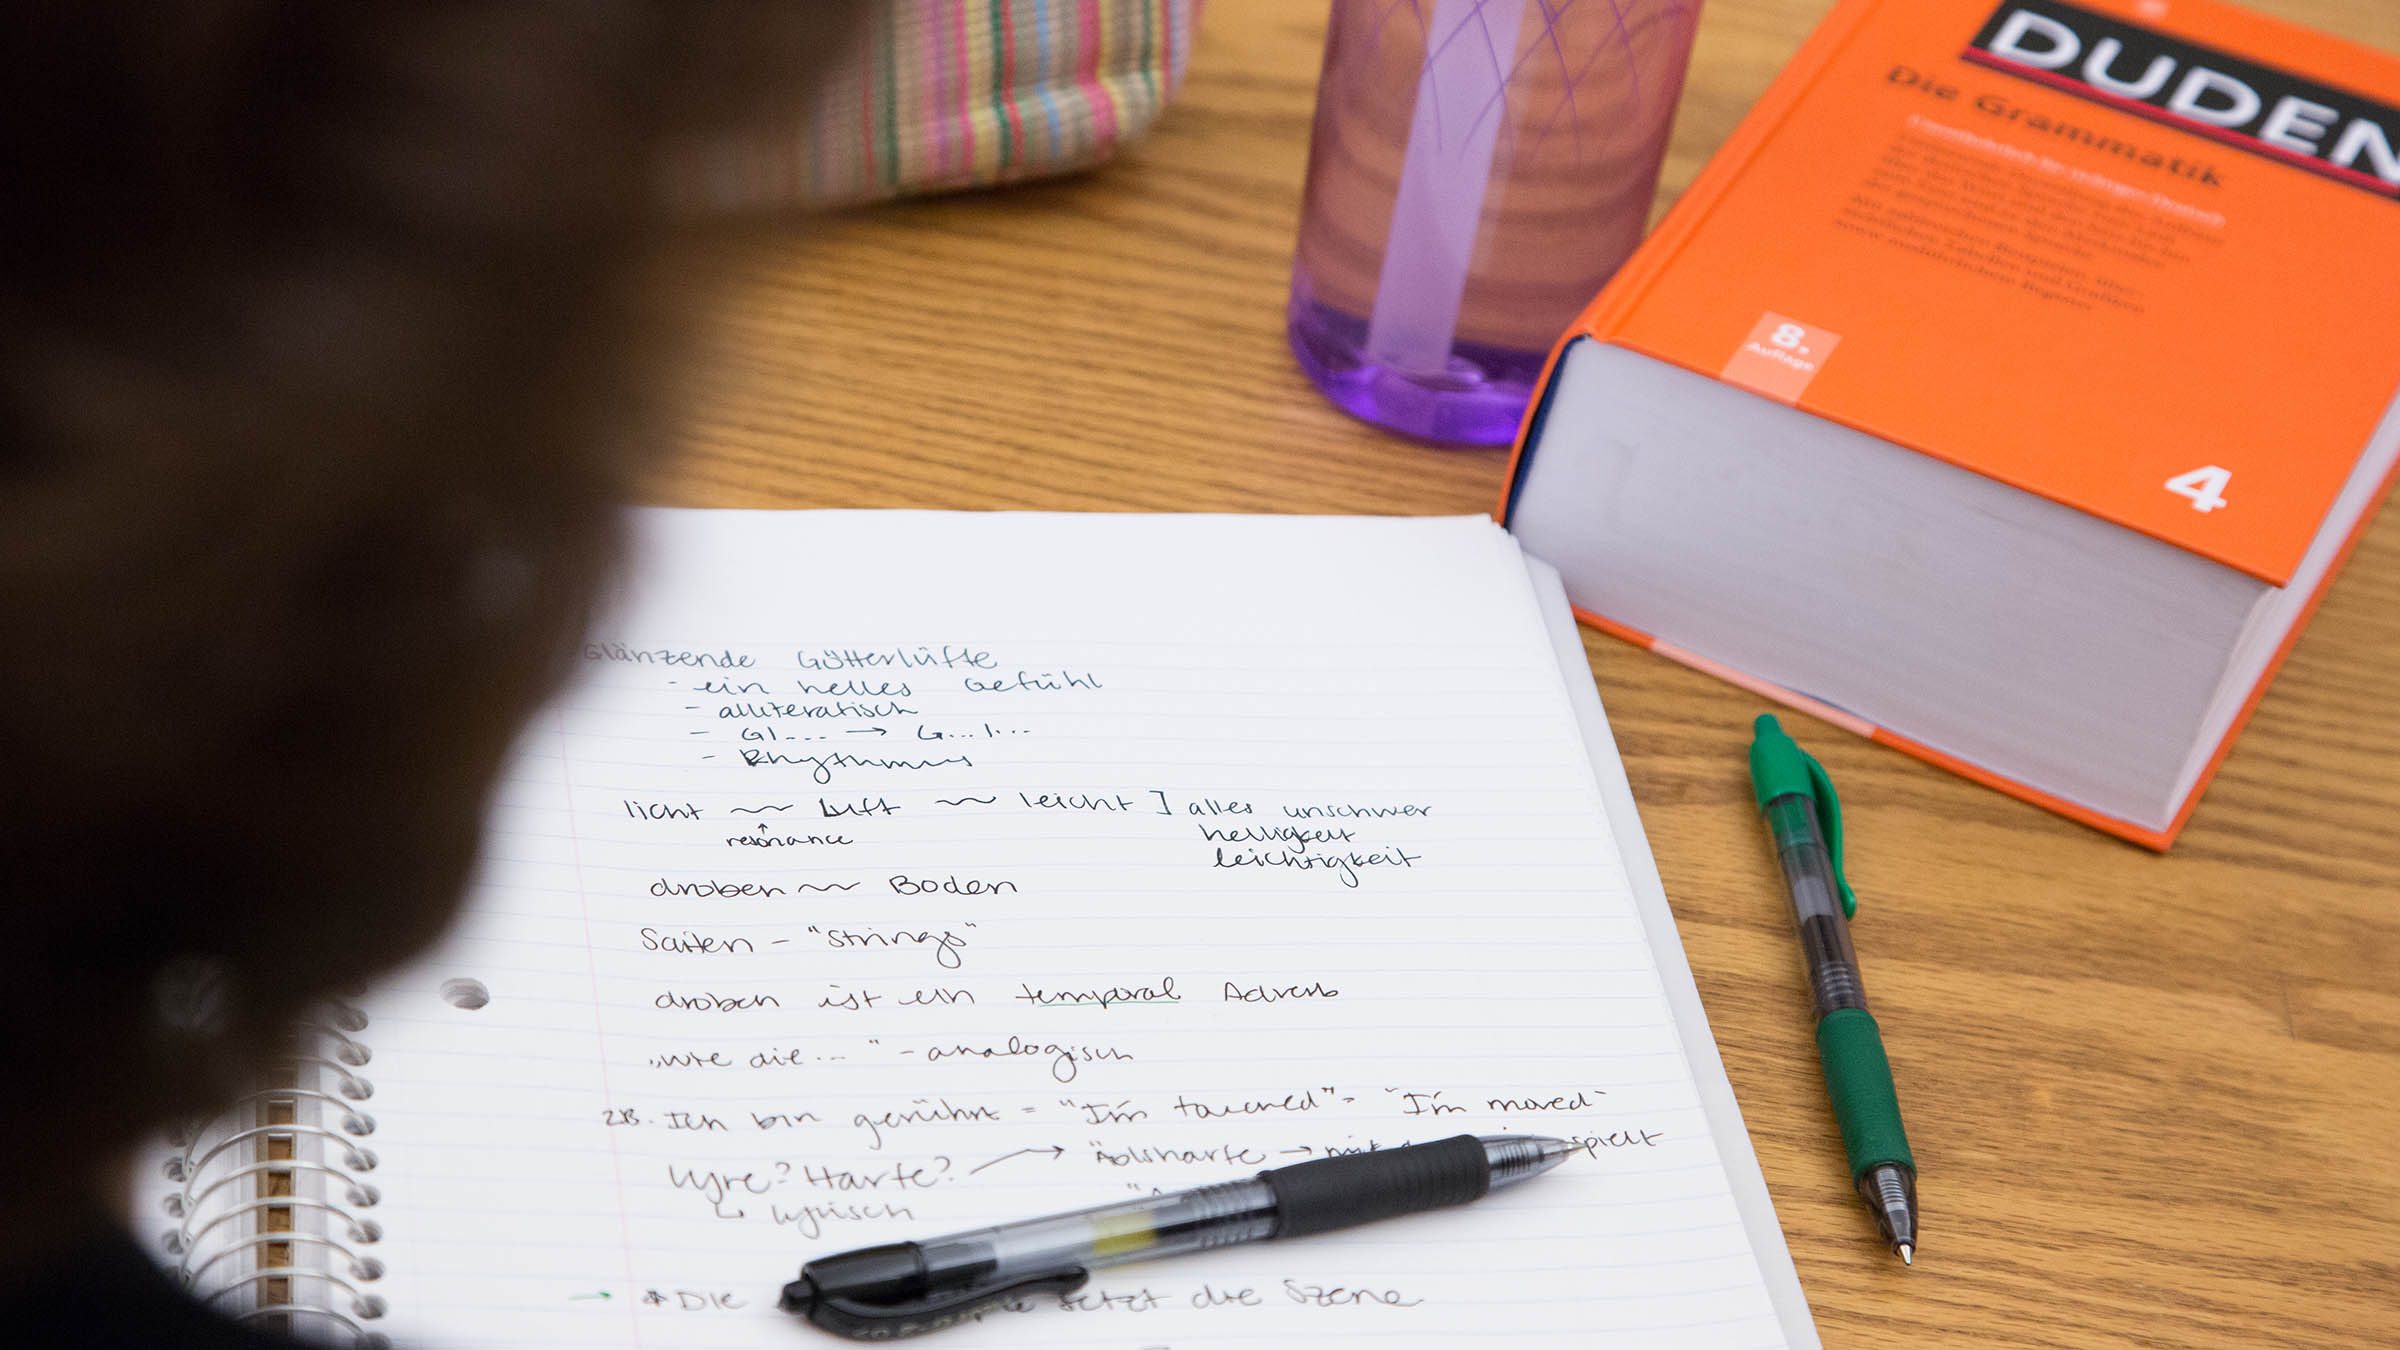 DUDEN
Die Grammatik
Unentbehrlich für richtiges Deutsch
8.
Auflage
4
Glänzende Götterlüfte
- ein helles Gefühl
- alliteratisch
- Gl... → G...l...
- Rhythmus
licht ~ Luft ~ leicht ] alles unschwer
resonance
helligkeit
leichtigkeit
droben ~ Boden
Saiten - "strings"
droben ist ein temporal Adverb
„wie die ..." - analogisch
z.B. Ich bin gerührt = "I'm touched" = "I'm moved"
Lyre? Harfe? → Äolsharfe → mit spielt
↳ lyrisch
→ * Die setzt die Szene